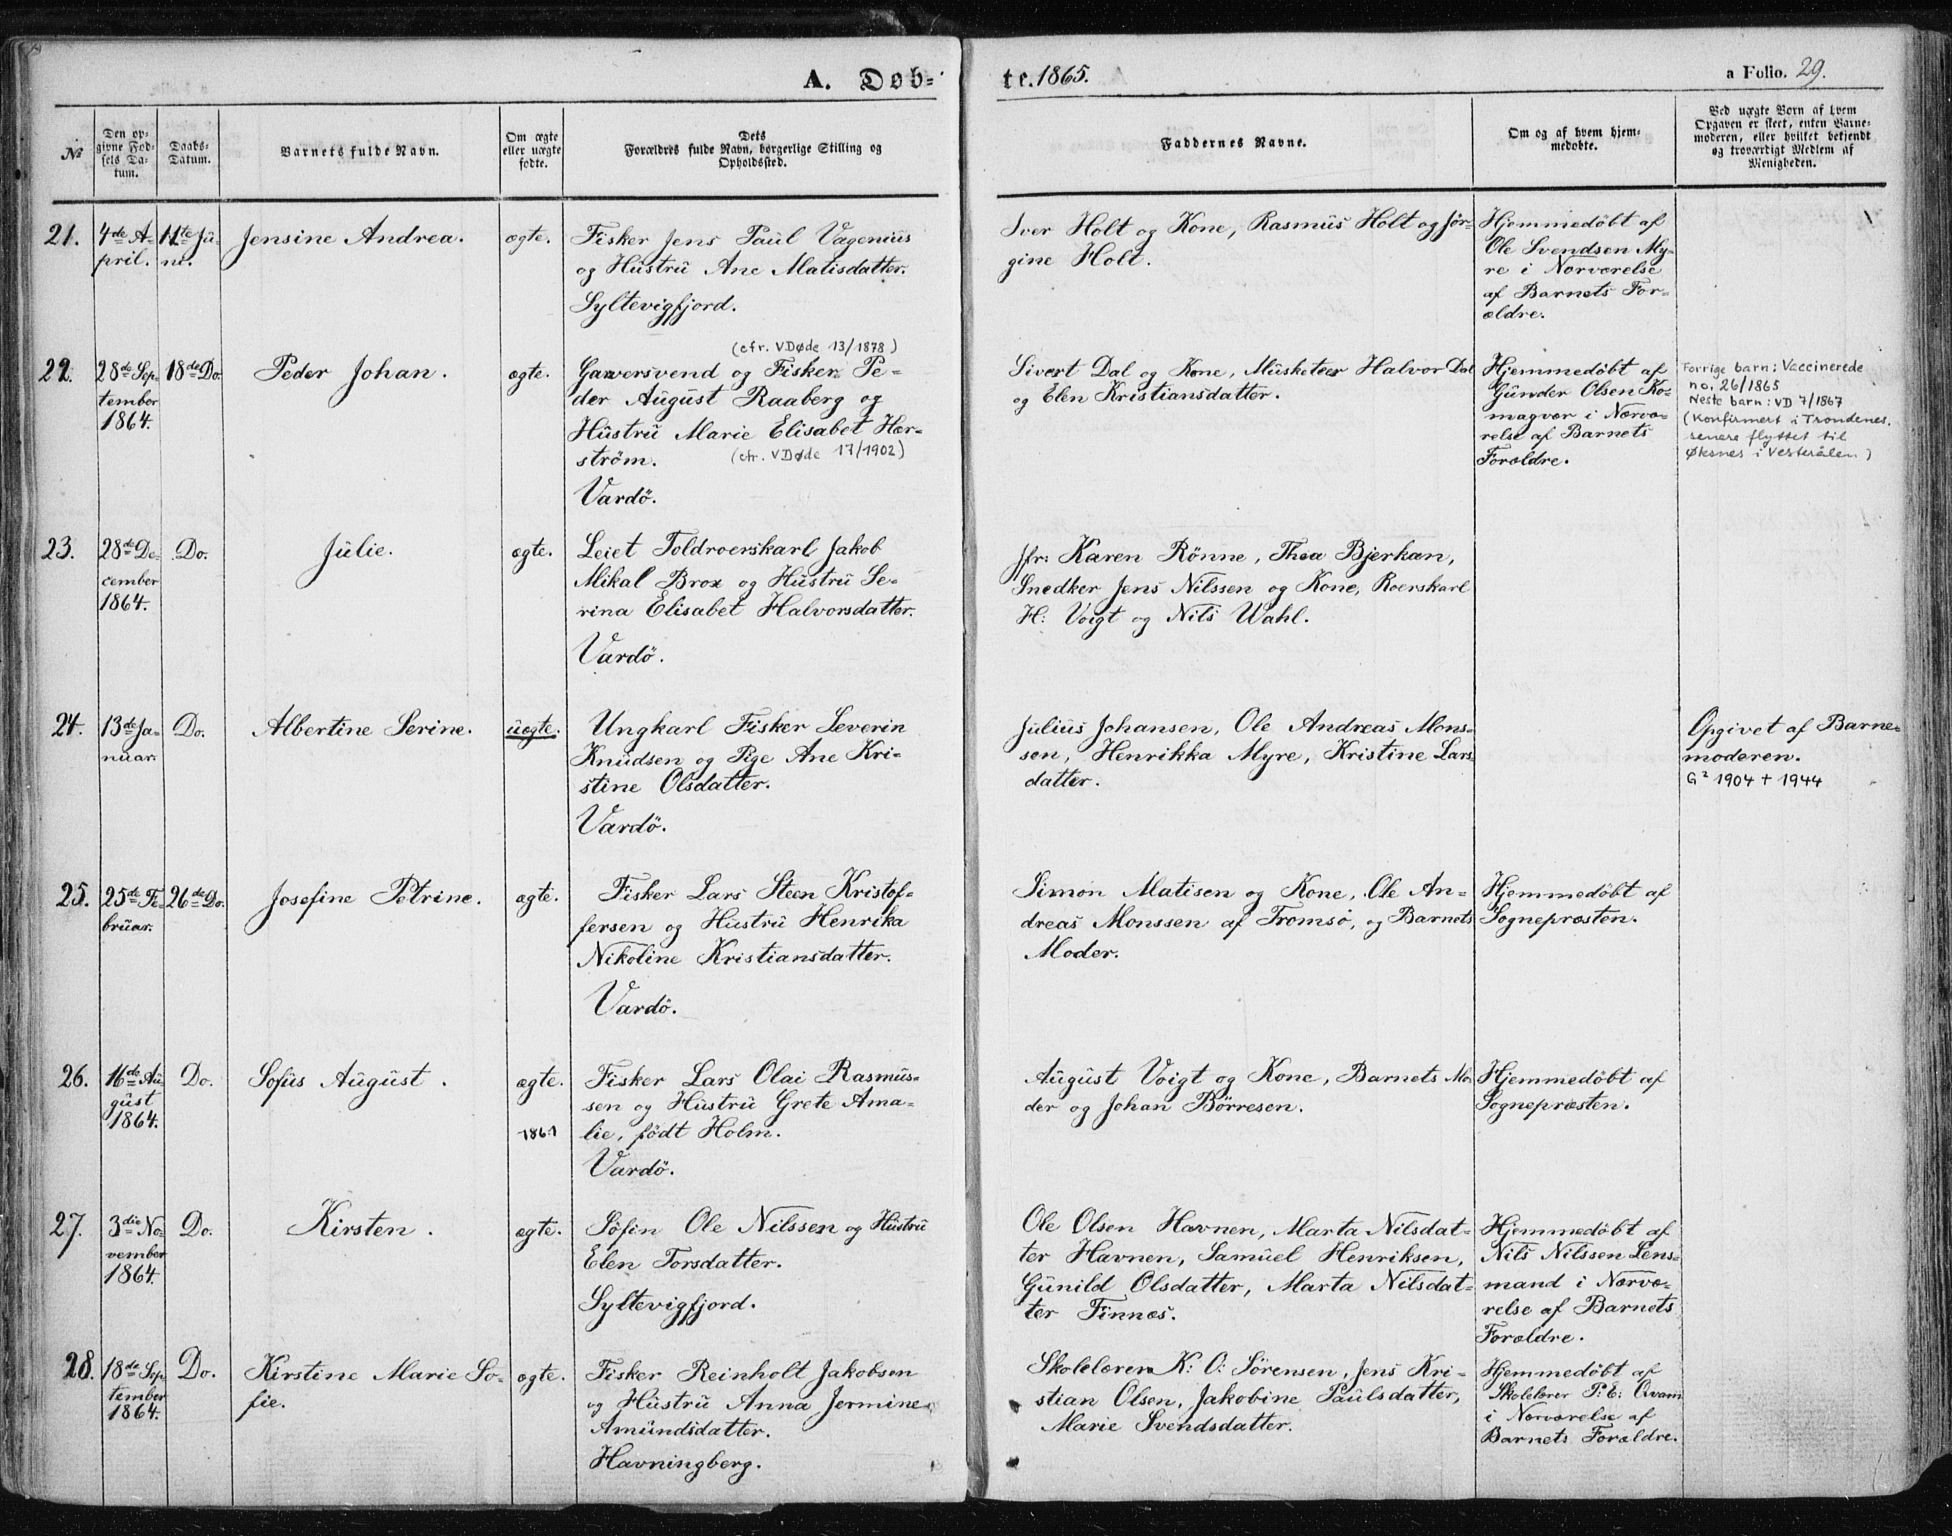 A. Døb-
te. 1865.
a Folio. 29.
No
Den op-
givne Fød-
sels Da-
tum.
Daabs-
Datum.
Barnets fulde Navn.
Om ægte
eller uægte
fødte.
Dets
Forældres fulde Navn, borgerlige Stilling og
Opholdssted.
Faddernes Navne.
Om og af hvem hjem-
medøbte.
Ved uægte Børn af hvem
Opgaven er skeet, enten Barne-
moderen, eller hvilket bekjendt
og troværdigt Medlem af
Menigheden.
21.
4de A-
pril.
11te Jü-
ni.
Jensine Andrea.
ægte.
Fisker Jens Paul Vagenius
og Hüstrü Ane Matisdatter.
Syltevigfjord.
Iver Holt og Kone, Rasmüs Holt og Jør-
gine Holt.
Hjemmedøbt af
Ole Svendsen My-
re i Nærværelse
af Barnets For-
ældre.
22.
28de Sep-
tember
1864.
18de Do.
Peder Johan.
ægte.
(cfr. VDøde 13/1878)
Garversvend og Fisker Pe-
der Aügüst Raaberg og
Hüstrü Marie Elisabet Hær-
ström.
(cfr. VDøde 17/1902)
Vardö.
Sivert Dal og Kone, Müsketeer Halvor Dal
og Elen Kristiansdatter.
Hjemmedøbt af
Günder Olsen Ko-
magvær i Nærvæ-
relse af Barnets
Forældre.
Forrige barn: Vaccinerede
no. 26/1865
Neste barn: VD 7/1867
(Konfirmert i Trondenes.
senere flyttet til
Øksnes i Vesterålen)
23.
28de De-
cember
1864.
Do.
Jülie.
ægte.
Leiet Toldroerskarl Jakob
Mikal Brox og Hüstrü Se-
rina Elisabet Halvorsdatter.
Vardö.
Jfr: Karen Rönne, Thea Bjerkan,
Snedker Jens Nilssen og Kone, Roerskarl
H: Voigt og Nils Wahl.
24.
13de Ja-
nüar.
Do.
Albertine Serine.
üægte.
Ungkarl Fisker Severin
Knüdsen og Pige Ane Kri-
stine Olsdatter.
Vardö.
Jülius Johansen, Ole Andreas Mons-
sen, Henrikka Myre, Kristine Lars
datter.
Opgivet af Barne-
moderen.
G² 1904 + 1944
25.
25de Fe-
brüar.
26de Do.
Josefine Petrine.
ægte.
Fisker Lars Steen Kristof-
fersen og Hüstrü Henrika
Nikoline Kristiansdatter.
Vardö.
Simon Matisen og Kone, Ole An-
dreas Monssen af Tromsö, og Barnets
Moder.
Hjemmedøbt af
Sognepræsten.
26.
16de Aü-
güst
1864.
Do.
Sofüs Aügüst.
ægte.
1861
Fisker Lars Olai Rasmüs-
sen og Hüstrü Grete Ama-
lie, födt Holm.
Vardö.
Aügüst Voigt og Kone, Barnets Mo-
der og Johan Börresen.
Hjemmedøbt af
Sognepræsten.
27.
3die No-
vember
1864.
Do.
Kirsten.
ægte.
Söfin Ole Nilssen og Hüstrü
Elen Torsdatter.
Syltevigfjord.
Ole Olsen Havnen, Marta Nilsdat-
ter Havnen, Samüel Henriksen,
Günild Olsdatter, Marta Nilsdat-
ter Finnæs.
Hjemmedøbt af
Nils Nilssen Lens-
mand i Nærvæ-
relse af Barnets
Forældre.
28.
18de Sep-
tember
1864.
Do.
Kirstine Marie So-
fie.
ægte.
Fisker Reinholt Jakobsen
og Hüstrü Anna Jermine
Amündsdatter.
Havningberg.
Skolelærer K: O: Sörensen, Jens Kri-
stian Olsen, Jakobine Paülsdatter,
Marie Svendsdatter.
Hjemmedøbt af
Skolelærer P: E: Qvam
i Nærværelse af
Barnets Forældre.